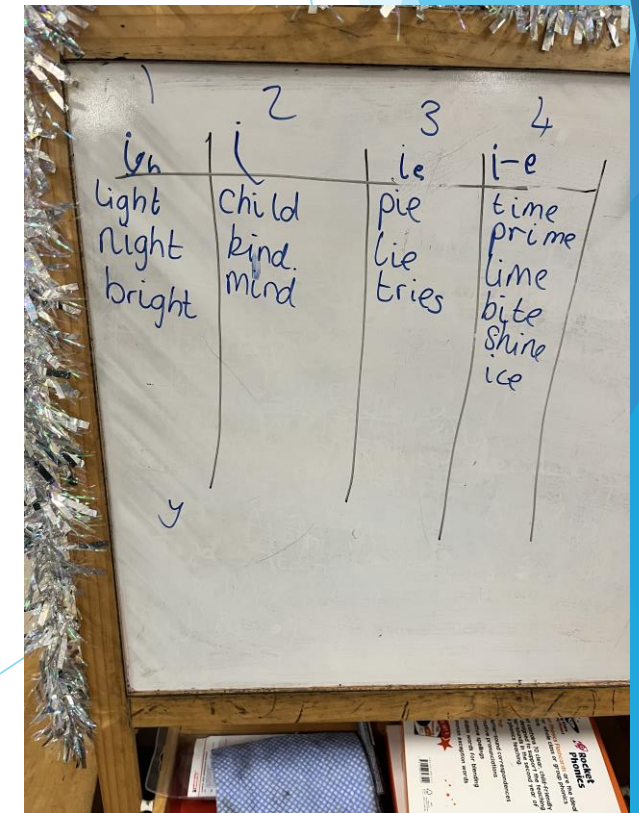 1 2 3 4
igh i ie i-e
light child pie time
night kind. lie prime
bright mind tries lime
bite
shine
ice
y
Rocket
Phonics